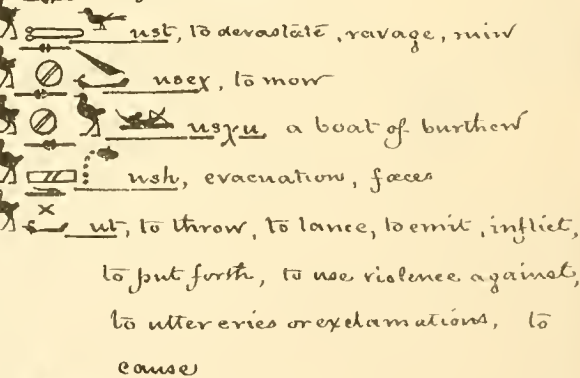 ust, to devastate, ravage, ruin
usex, to mow
usχu, a boat of burthen
ush, evacuation, fæces
ut, to throw, to lance, to emit, inflict,
to put forth, to use violence against,
to utter cries or exclamations, to
cause